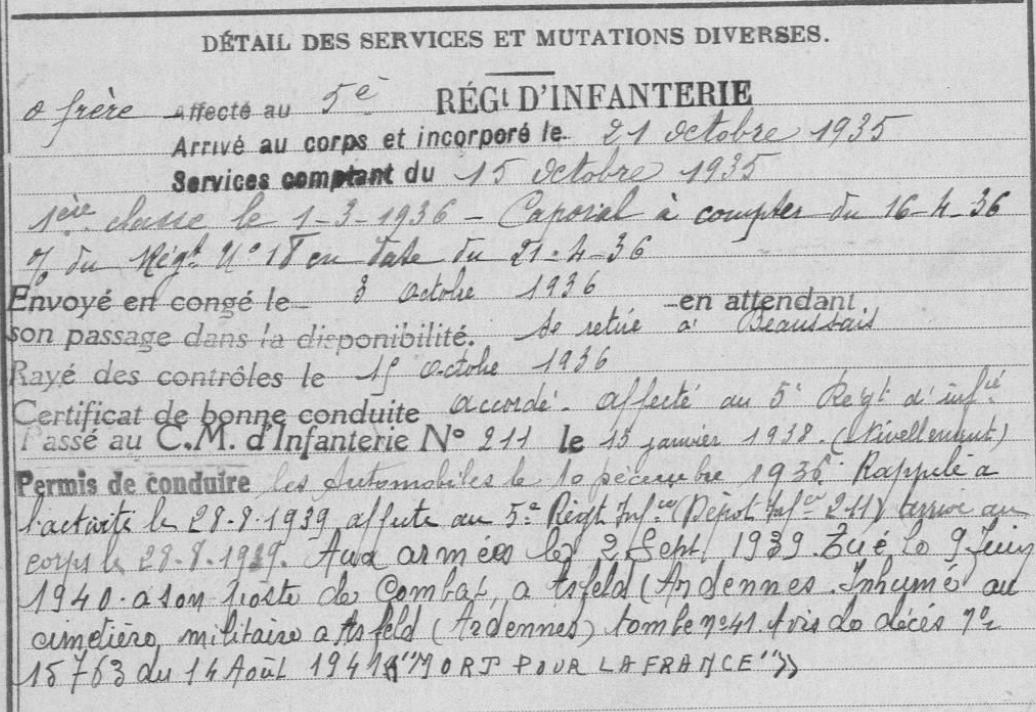 DÉTAIL DES SERVICES ET MUTATIONS DIVERSES.
a frère Affecté au 5è RÉGt D'INFANTERIE
Arrivé au corps et incorporé le 21 octobre 1935
Services comptant du 15 octobre 1935
1ère classe le 1-3-1936 - Caporal à compter du 16-4-36
% du Régt N° 18 en date du 21-4-36
Envoyé en congé le 8 octobre 1936 en attendant
son passage dans la disponibilité. se retire à Beaussais
Rayé des contrôles le 15 octobre 1936
Certificat de bonne conduite accordé. affecté au 5è Regt d'infie
Passé au C.M. d'Infanterie N° 211 le 15 janvier 1938. (Nivellement)
Permis de conduire les Automobiles le 10 décembre 1936 Rappelé à
l'activité le 28-8-1939 affecté au 5e Régt Infie (Dépôt Infie 211) arrivé au
corps le 28-8-1939. Aux armées le 2 Sept 1939. Tué le 9 Juin
1940 a son poste de Combat, a Asfeld (Ardennes. Inhumé au
cimetière militaire a Asfeld (Ardennes) tombe n°41. Avis de décès n°
15763 du 14 Août 1941 ("MORT POUR LA FRANCE")